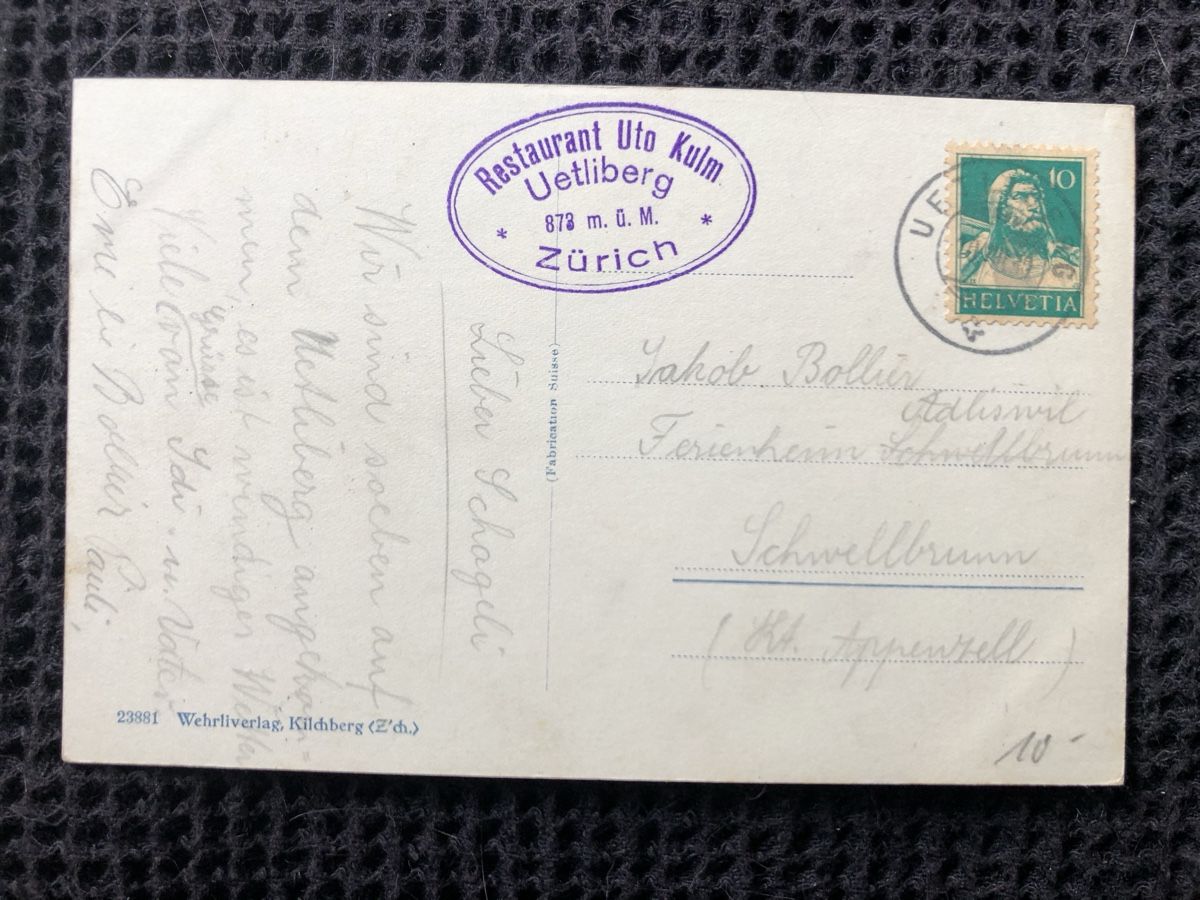 Restaurant Uto Kulm
Uetliberg
873 m. ü. M.
* Zürich *
10
HELVETIA
UE
Lieber Schageli
Wir sind soeben auf
dem Uetliberg angekom-
men, es ist windiger Wetter
Viele Grüsse
von Idi u. Vater
Bollier Pauli,
(Fabrication Suisse)
Jakob Bollier
Adliswil
Ferienheim Schwellbrunn
Schwellbrunn
(Kt. Appenzell)
23881 Wehrliverlag, Kilchberg (Z'ch.)
10-